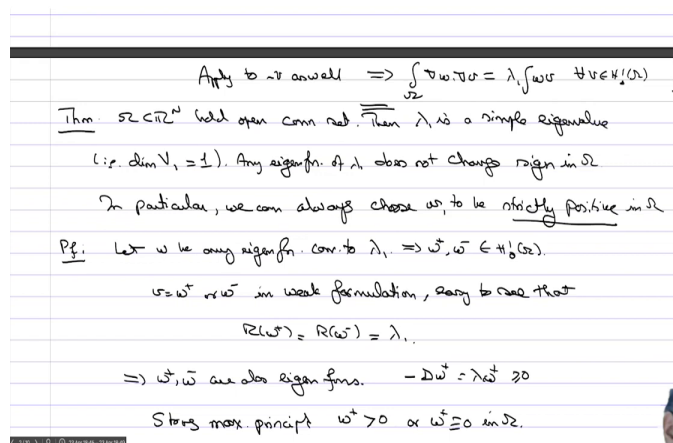 Apply to -v as well => ∫_Ω ∇w.∇v = λ₁∫wv ∀v∈H₀¹(Ω)
Thm. Ω⊂ℝᴺ bdd open conn set. Then λ₁ is a simple eigenvalue
(i.e. dim V₁ = 1). Any eigenfn. of λ₁ does not change sign in Ω
In particular, we can always choose w₁ to be strictly positive in Ω
Pf. Let w be any eigenfn. corr. to λ₁. => w⁺, w⁻ ∈ H₀¹(Ω).
v=w⁺ or w⁻ in weak formulation, easy to see that
R(w⁺) = R(w⁻) = λ₁.
=> w⁺, w⁻ are also eigenfns. -Δw⁺ = λw⁺ ≥0
Strong max. principle w⁺ >0 or w⁺≡0 in Ω.